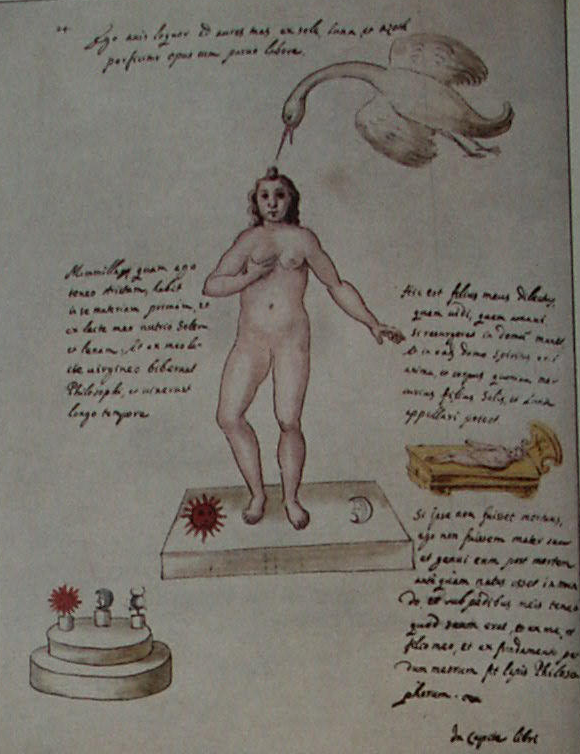 24
Ego avis loquor ad aures mas ex sole, luna, et azoth
perficitur opus cum parvo labore.
Mammillas, quam ego
teneo strictam, habet
in se materiam primam, et
ex lacte meo nutrio Solem
et lunam, Et ex meo lac
te virgineo biberunt
Philosophi, et vixerunt
longo tempore
Hic est filius meus dilectus,
quem vidi, quem amavi
si resurgeret in domu manet
et in eâdem domo spiritus erit
anima, et corpus, quoniam mer
curius filius Solis, et Lunæ
appellari potest
Si ipse non fuisset mortuus,
ego non fuissem mater sua
et genui eum post mortem
antequam natus esset in mun
do, et sub pedibus meis teneo
quod suum erat, et ex me, et
filio meo, et ex fundamento pe
dum meorum fit lapis Philoso
phorum.
In capite libri